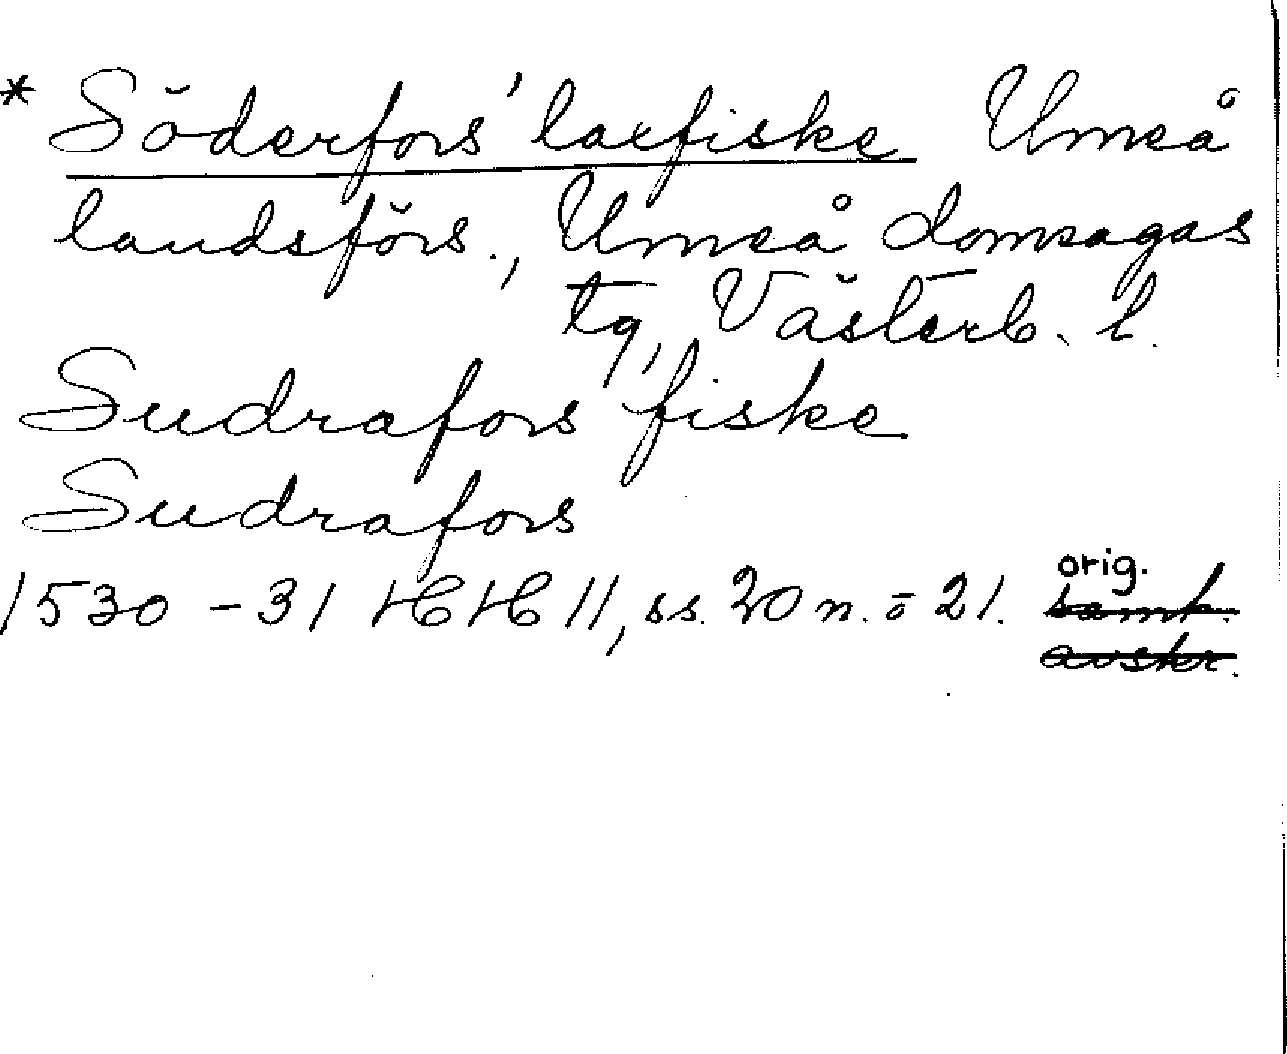 * Söderfors' laxfiske Umeå
landsförs., Umeå domsagas
tg, Västerb. l.
Sudrafors fiske
Sudrafors
orig.
1530-31 HH 11, ss. 20 n. ö 21. samt.
avskr.